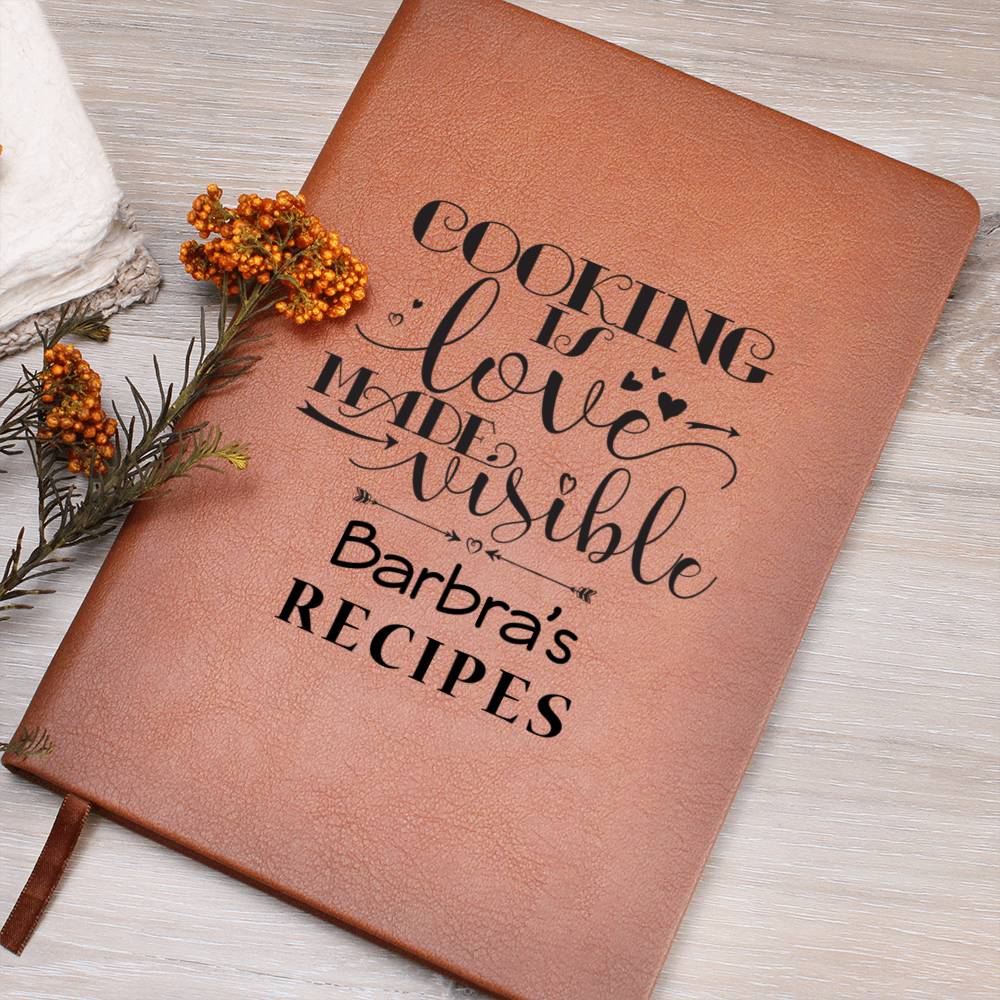 COOKING
IS
love
MADE
visible
Barbra's
RECIPES